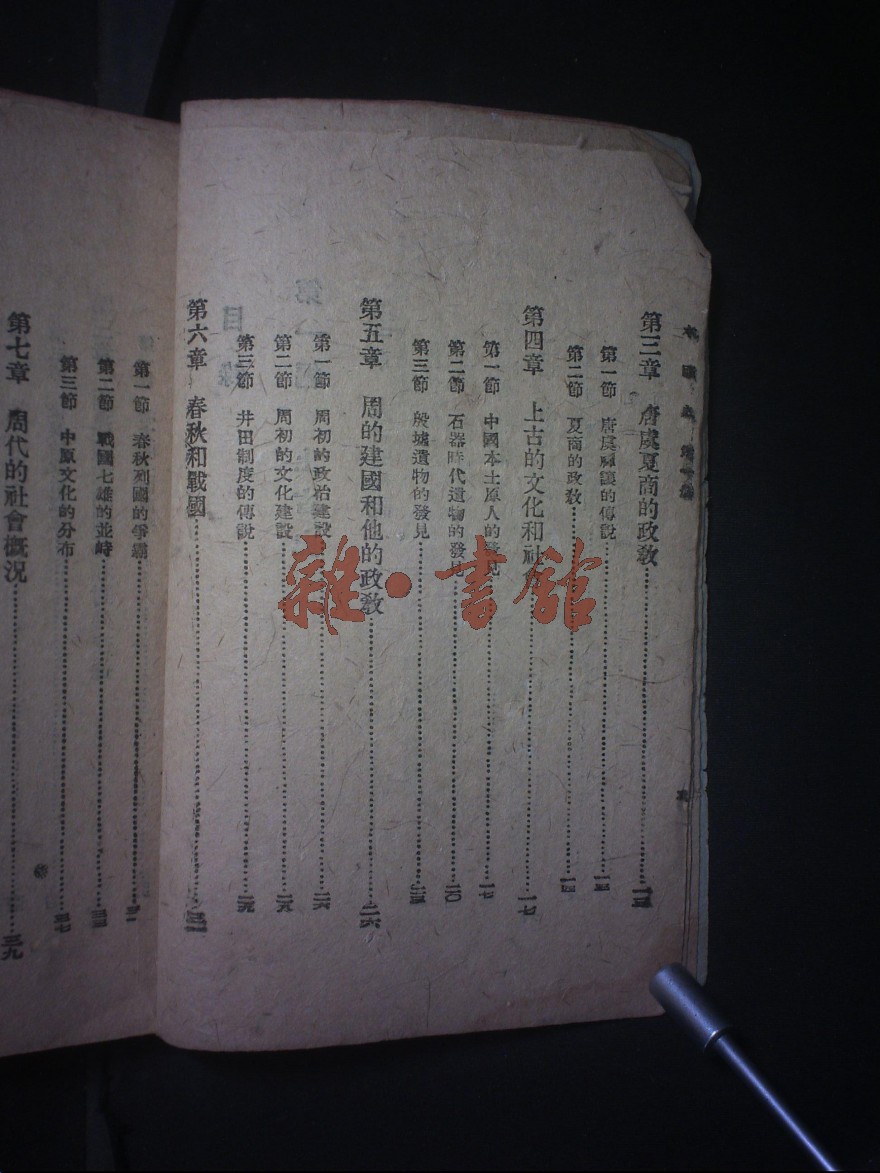 第三章 唐虞夏商的政敎……一三
第一節 唐虞禪讓的傳說……一三
第二節 夏商的政敎……一四
第四章 上古的文化和社會……一七
第一節 中國本土原人的發見……一七
第二節 石器時代遺物的發見……二〇
第三節 殷墟遺物的發見……二四
第五章 周的建國和他的政敎……二六
第一節 周初的政治建設……二六
第二節 周初的文化建設……二八
第三節 井田制度的傳說……二九
第六章 春秋和戰國……三一
第一節 春秋列國的爭霸……三一
第二節 戰國七雄的並峙……三四
第三節 中原文化的分布……三七
第七章 周代的社會槪況……三九
雜·書館